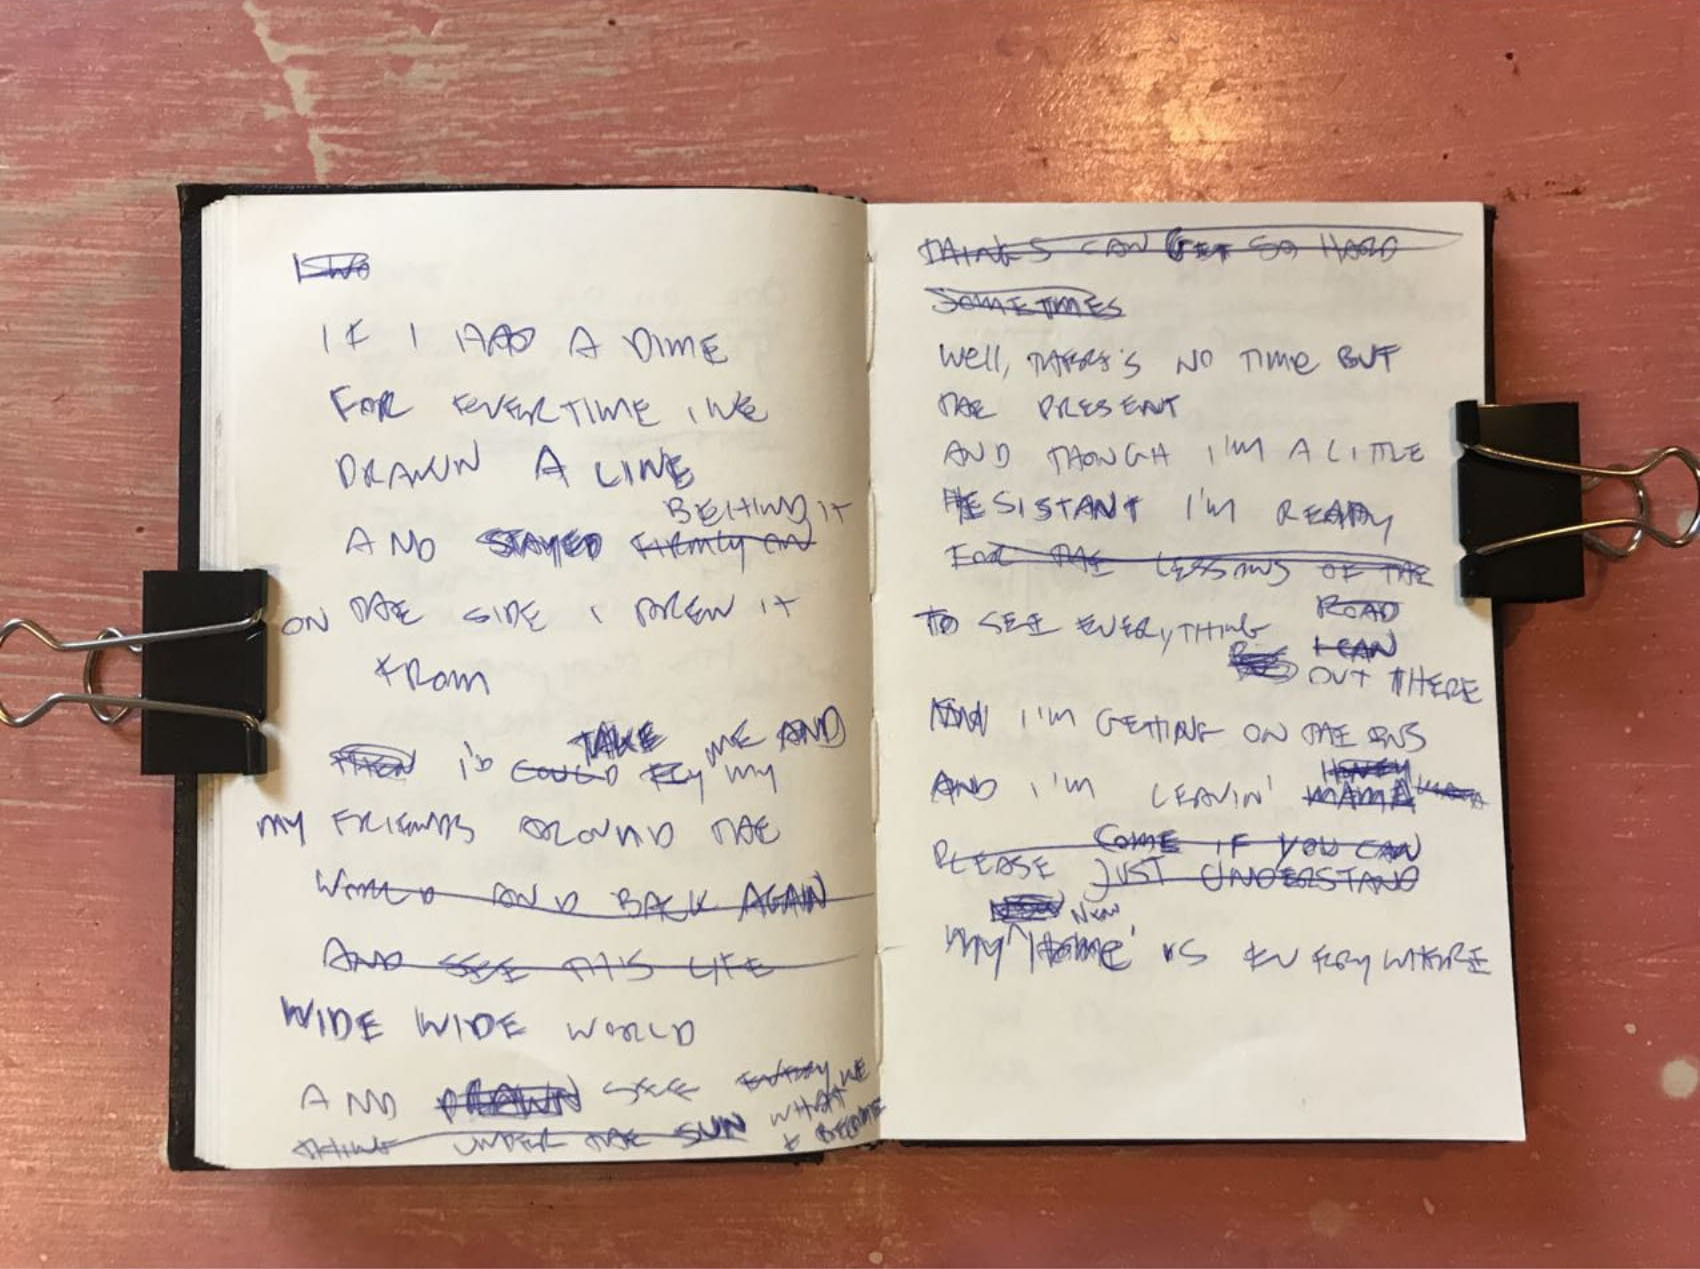 IF I HAD A DIME
FOR EVERTIME IVE
DRAWN A LINE
BEHIND IT
AND STAYED FIRMLY ON
ON THE SIDE I DREW IT
FROM
TAKE ME AND
THEN I'D COULD FLY MY
MY FRIENDS AROUND THE
WORLD AND BACK AGAIN
AND SEE THIS LIFE
WIDE WIDE WORLD
AND SEE EVERY WE
THING UNDER THE SUN WHAT
BECOME
THINGS CAN GET SO HARD
SOMETIMES
Well, THERE'S NO TIME BUT
THE PRESENT
AND THOUGH I'M A LITTLE
HESISTANT I'M READY
FOR THE LESSONS OF THE
ROAD
TO SEE EVERYTHING
I CAN
OUT THERE
NOW I'M GETTING ON THE BUS
HONEY
AND I'M LEAVIN' MAMA
COME IF YOU CAN
PLEASE JUST UNDERSTAND
NEW
MY 'HOME' IS EVERYWHERE